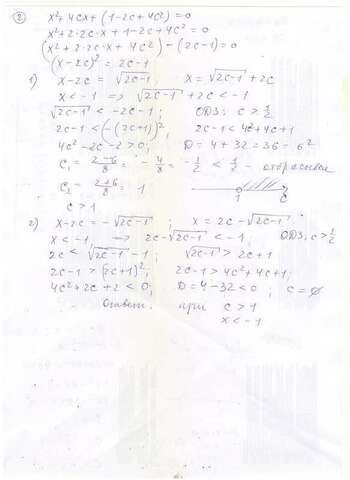 2) x² + 4cx + (1-2c+4c²) = 0
x² + 2·2c·x + 1 - 2c + 4c² = 0
(x² + 2·2c·x + 4c²) - (2c-1) = 0
(x-2c)² = 2c-1
1) x-2c = √2c-1 ; x = √2c-1 + 2c
x < -1 => √2c-1 + 2c < -1
√2c-1 < -2c-1 ; ОДЗ: c > 1/2
2c-1 < (-(2c+1))² ; 2c-1 < 4c²+4c+1
4c²-2c-2 > 0 ; D = 4+32 = 36 = 6²
c₁ = 2-6/8 = -4/8 = -1/2 < 1/2 - отбрасываем
c₂ = 2+6/8 = 1
1 c
c > 1
2) x-2c = -√2c-1 ; x = 2c-√2c-1
x < -1, => 2c-√2c-1 < -1, ОДЗ: c > 1/2
2c < √2c-1 - 1 ; √2c-1 > 2c+1
2c-1 > (2c+1)² ; 2c-1 > 4c²+4c+1 ;
4c²+2c+2 < 0 ; D = 4-32 < 0 ; c = ∅
Ответ: при c > 1
x < -1